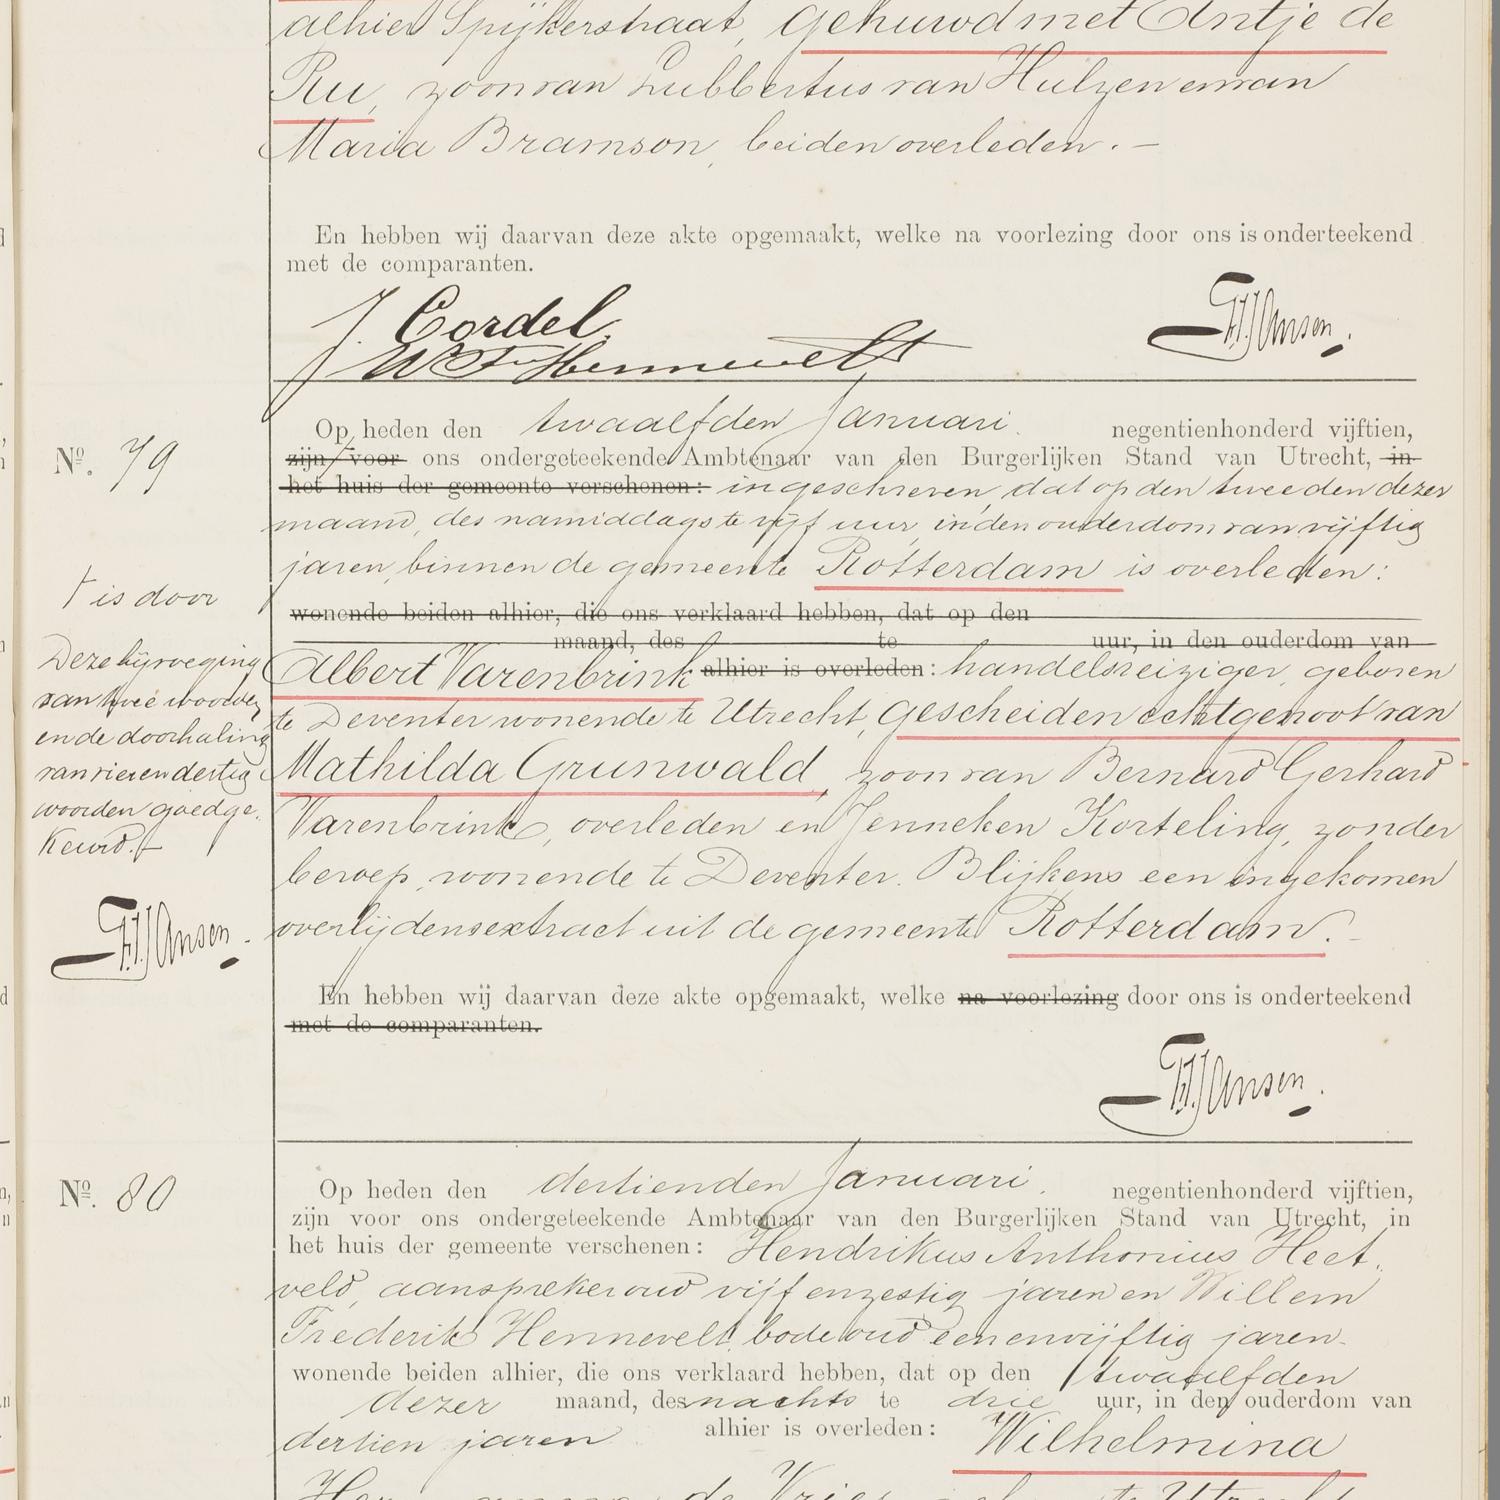 alhier Spijkerstraat, gehuwd met Antje de
Ru, zoon van Lubbertus van Hulzen en van
Maria Bramson, beiden overleden. —
En hebben wij daarvan deze akte opgemaakt, welke na voorlezing door ons is onderteekend
met de comparanten.
J. Cordel.
W F Hennevelt
F.J. Jansen.
No. 79
Op heden den twaalfden Januari negentienhonderd vijftien,
zijn voor ons ondergeteekende Ambtenaar van den Burgerlijken Stand van Utrecht, in
het huis der gemeente verschenen: ingeschreven, dat op den tweeden dezer
maand, des namiddags te vijf uur, in den ouderdom van vijftig
jaren, binnen de gemeente Rotterdam is overleden:
wonende beiden alhier, die ons verklaard hebben, dat op den
maand, des te uur, in den ouderdom van
Albert Varenbrink alhier is overleden: handelsreiziger, geboren
te Deventer wonende te Utrecht, gescheiden echtgenoot van
Mathilda Grunwald, zoon van Bernard Gerhard
Varenbrink, overleden en Jenneken Korteling, zonder
beroep, wonende te Deventer. Blijkens een ingekomen
overlijdensextract uit de gemeente Rotterdam. —
is door
Deze bijvoeging
van twee woorden
en de doorhaling
van vier en dertig
woorden goedge-
keurd. —
F.J. Jansen.
En hebben wij daarvan deze akte opgemaakt, welke na voorlezing door ons is onderteekend
met de comparanten.
F.J. Jansen.
No. 80
Op heden den dertienden Januari negentienhonderd vijftien,
zijn voor ons ondergeteekende Ambtenaar van den Burgerlijken Stand van Utrecht, in
het huis der gemeente verschenen: Hendrikus Anthonius Heet-
veld, aanspreker oud vijf en zestig jaren en Willem
Frederik Hennevelt, bode oud een en vijftig jaren
wonende beiden alhier, die ons verklaard hebben, dat op den twaalfden
dezer maand, des nachts te drie uur, in den ouderdom van
dertien jaren alhier is overleden: Wilhelmina
de Vries te Utrecht